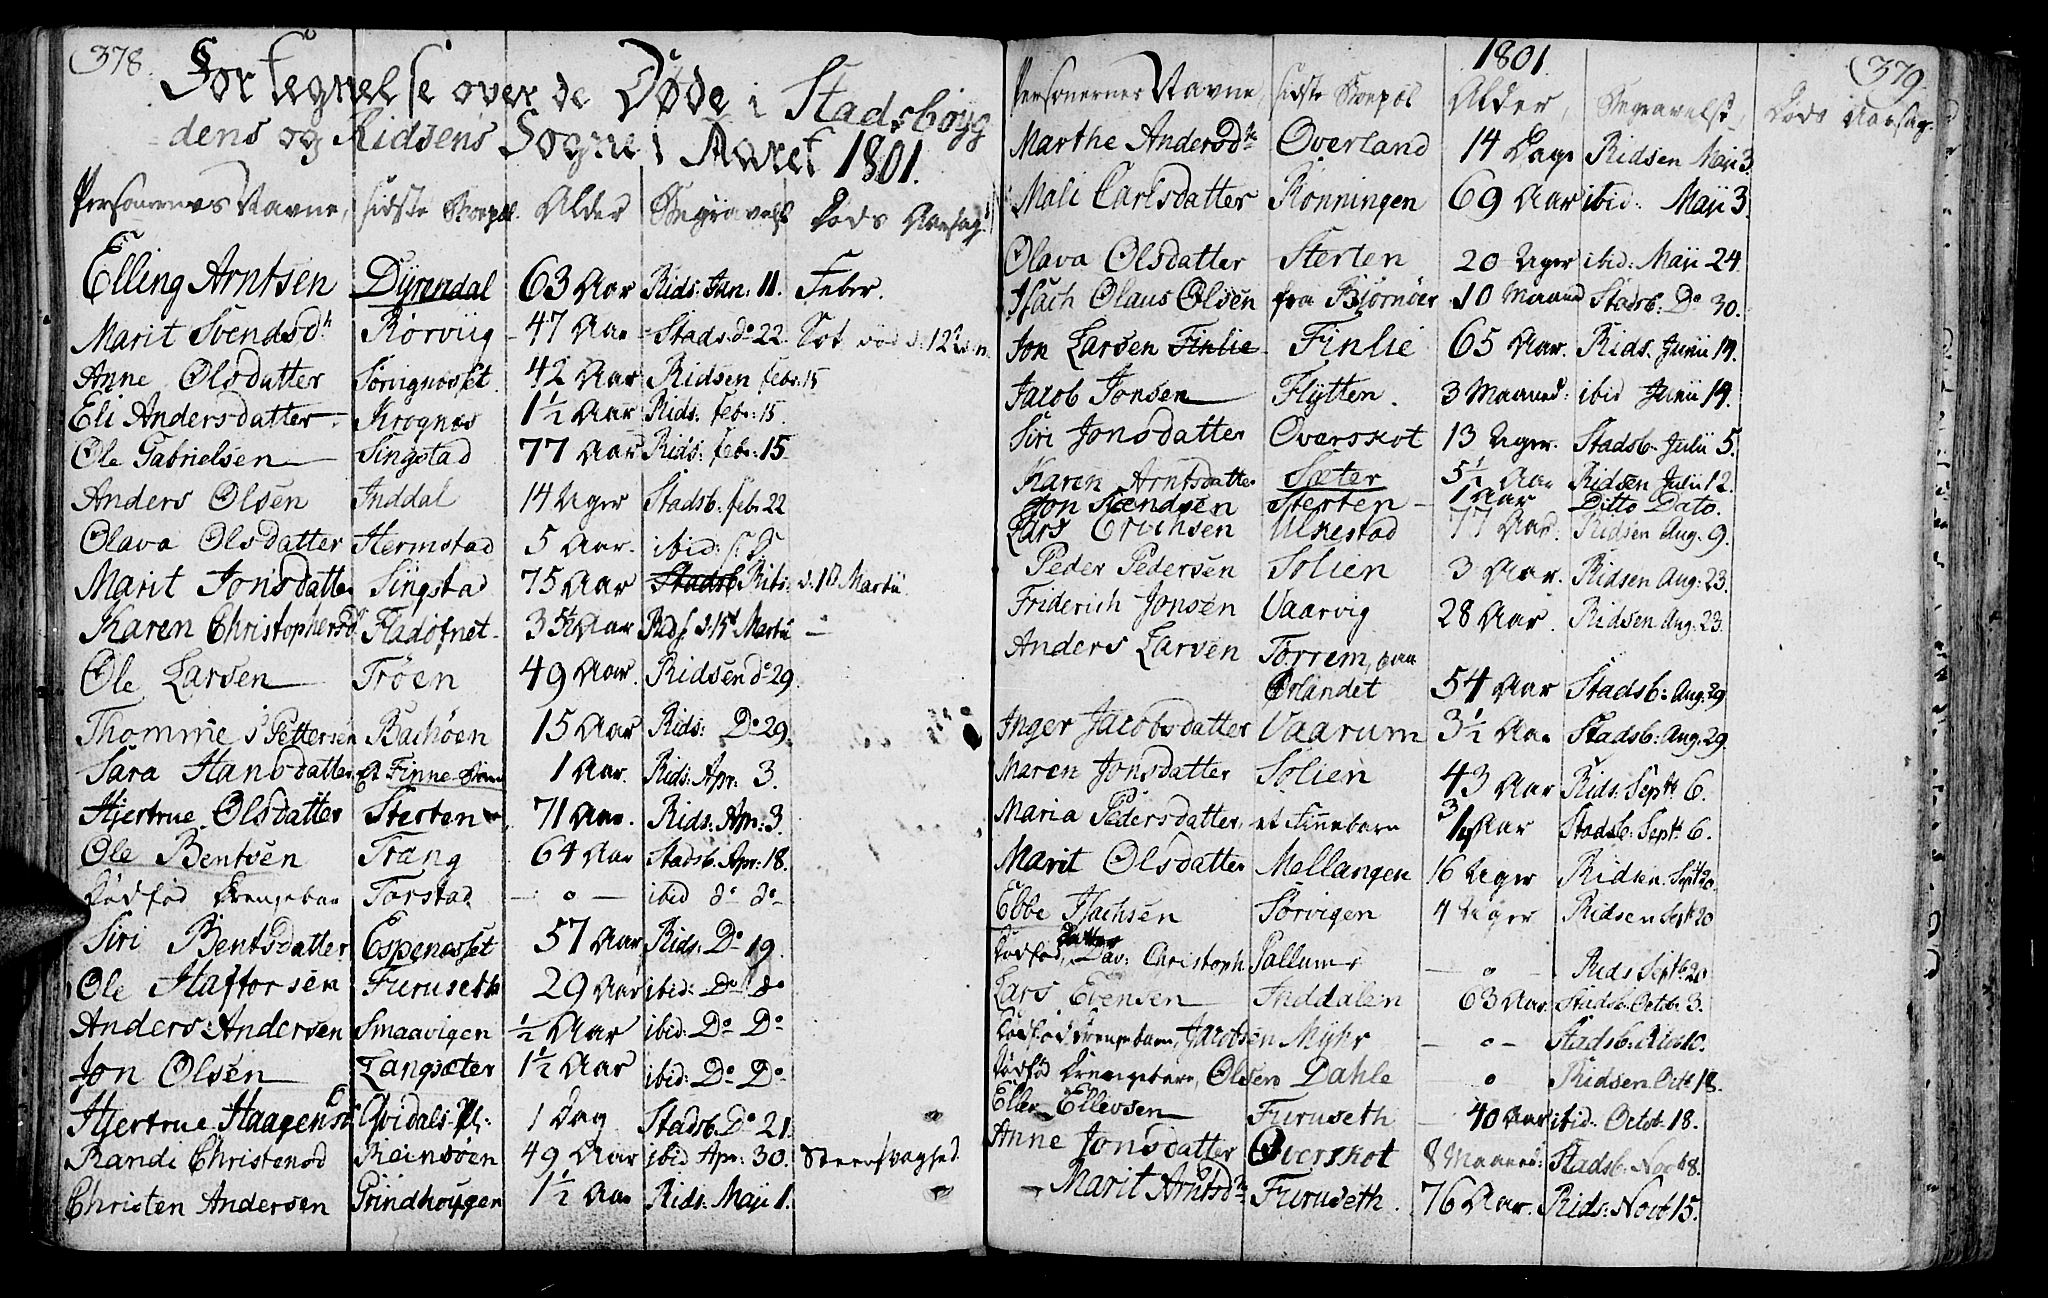 378.
Fortegnelse over de Døde i Stadsbøyg
dens og Ridsens Sogne i Aaret 1801.
Personernes Navne, sidste Boepæl. Alder Begravels Døds Aarsag
Elling Arntsen Dyrendal 63 Aar Rids: Jan: 11. Feber.
Marit Svendsdr Rørviig 47 Aar Stads. do 22.
Anne Olsdatter 42 Aar Ridsen febr: 15
Eli Andersdatter Krognæs 1½ Aar Rids: febr: 15.
Ole Gabrielsen Singstad 77 Aar Rids: febr: 15
Anders Olsen Inddal 14 Uger Stadsb: febr 22
Olava Olsdatter Hermstad 5 Aar. ibid:
Marit Jonsdatter Singstad 75 Aar Stadsb Rits: d. 1 Martii
Karen Christophersd Fladøfnet Aar Rids d. 15 Martii
Ole Larsen Trøen 49 Aar. Ridsen do 29.
Thomme Pettersen Bachøen 15 Aar Rids: Do 29.
Sara Hansdatter et Finne 1 Aar. Rids: Apr: 3.
Hjertrue Olsdatter Sterten 71 Aar. Rids: Apr: 3
Ole Bentsen Træng 64 Aar Stadsb. Apr: 18.
Dødfød Drengebar Torstad — o — ibid do do
Siri Bentsdatter Espenæsset 57 Aar Rids: Do 19.
Ole Haftorsen Furuseth 29 Aar ibid: Do do
Anders Andersen Smaavigen ½ Aar ibid: Do Do
Jon Olsen Langsæter 1½ Aar ibid: Do Do
Hjertrue Haagensd Qvidals-Pl: 1 Dag Stadsb. Do 21.
Randi Christensd Reinsøen 49 Aar ibid Apr: 30.
Christen Andersen Grindhougen 1½ Aar Rids: Maji 1.
1801. 379.
Personernes Navne, sidste Boepæl Alder, Begravels, Døds Aarsag.
Marthe Andersdtr Overland 14 Dage Ridsen Maji 3
Mali Carlsdatter Rønningen 69 Aar ibid: Maji 3.
Olava Olsdatter Sterten 20 Uger ibid: Maji 24.
Isach Olaus Olsen fra Bjørnøer 10 Maaned Stadsb: Do 30.
Jon Larsen Finlie Finlie 65 Aar. Rids. Junii 14.
Jacob Jonsen Flytten. 3 Maaned: ibid Junii 14.
Siri Jonsdatter Overskot 13 Uger. Stadsb. Julii 5.
Karen Arntsdatter Sæter 5½ Aar Ridsen Julii 12.
Jon Sterten 1 Aar Ditto Dato.
Lars Erichsen Ulkestad 77 Aar. Ridsen Aug: 9.
Peder Pedersen Solien 3 Aar. Ridsen Aug: 23.
Friderich Jonsen Vaarvig 28 Aar. Ridsen Aug: 23.
Anders Larsen Torrem, paa
Ørlandet 54 Aar Stadsb: Aug: 29
Inger Jacobsdatter Vaarum 3½ Aar Stadsb: Aug: 29
Maren Jonsdatter Solien 43 Aar Rids: Septb 6.
Maria Pedersdatter, et Finnebarn 3/4 Aar Stadsb: Septb 6.
Marit Olsdatter Mellangen 16 Uger Ridsen. Septb 20.
Ebbe Isachsen Sørvigen 4 Uger Ridsen Septb 20
Dødfød datter Dav: Christoph Pallums — o — Rids Septb 20
Lars Evensen Inddalen 63 Aar. Stadsb: Octob 3.
Dødfød Drengebarn, Jacobsen Myhr — o — Stadsb: 10.
Dødfød Drengebarn, Olsen Dahle o Ridsen Octb 18.
Eller Ellevsen Furuseth — 40 Aar ibid: Octob 18.
Anne Jonsdatter Overskot 8 Maaned: Stadsb. Novb 8.
Marit Arntsdtr Furuseth. 76 Aar. Rids: Novb 15.